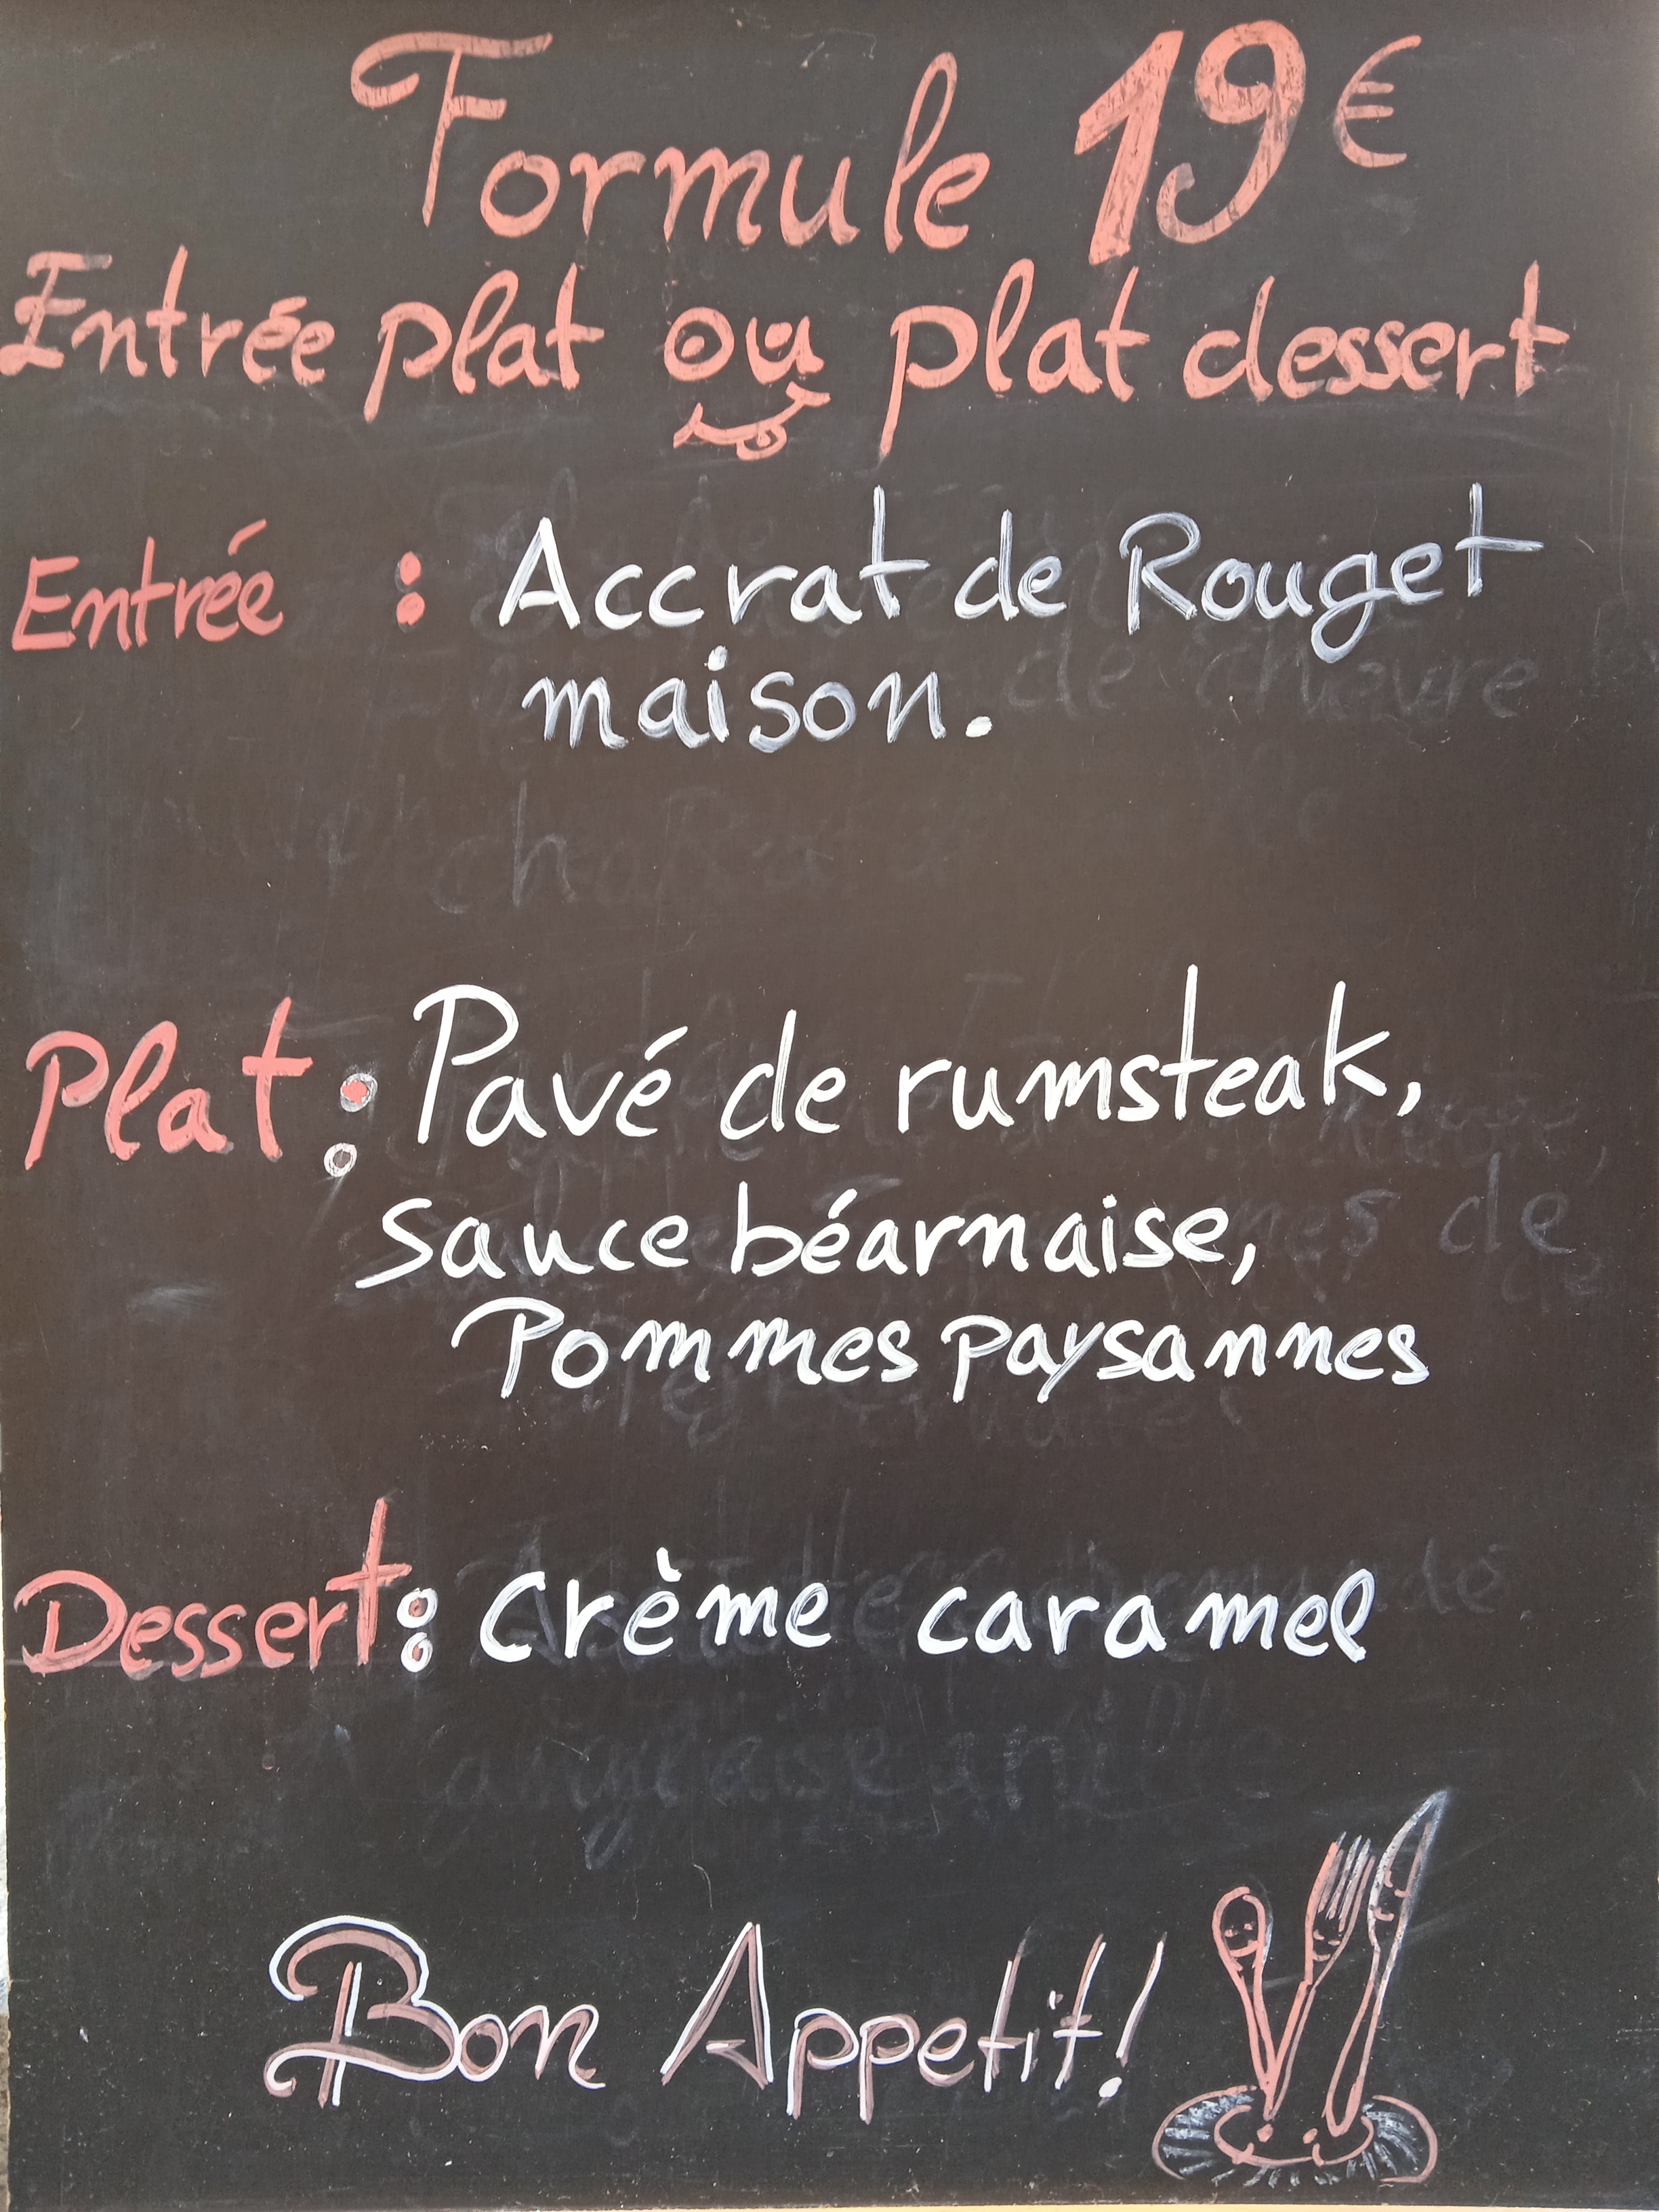 Formule 19€
Entrée plat ou plat dessert
Entrée : Accrat de Rouget
maison.
Plat : Pavé de rumsteak,
Sauce béarnaise,
Pommes paysannes
Dessert : Crème caramel
Bon Appetit!